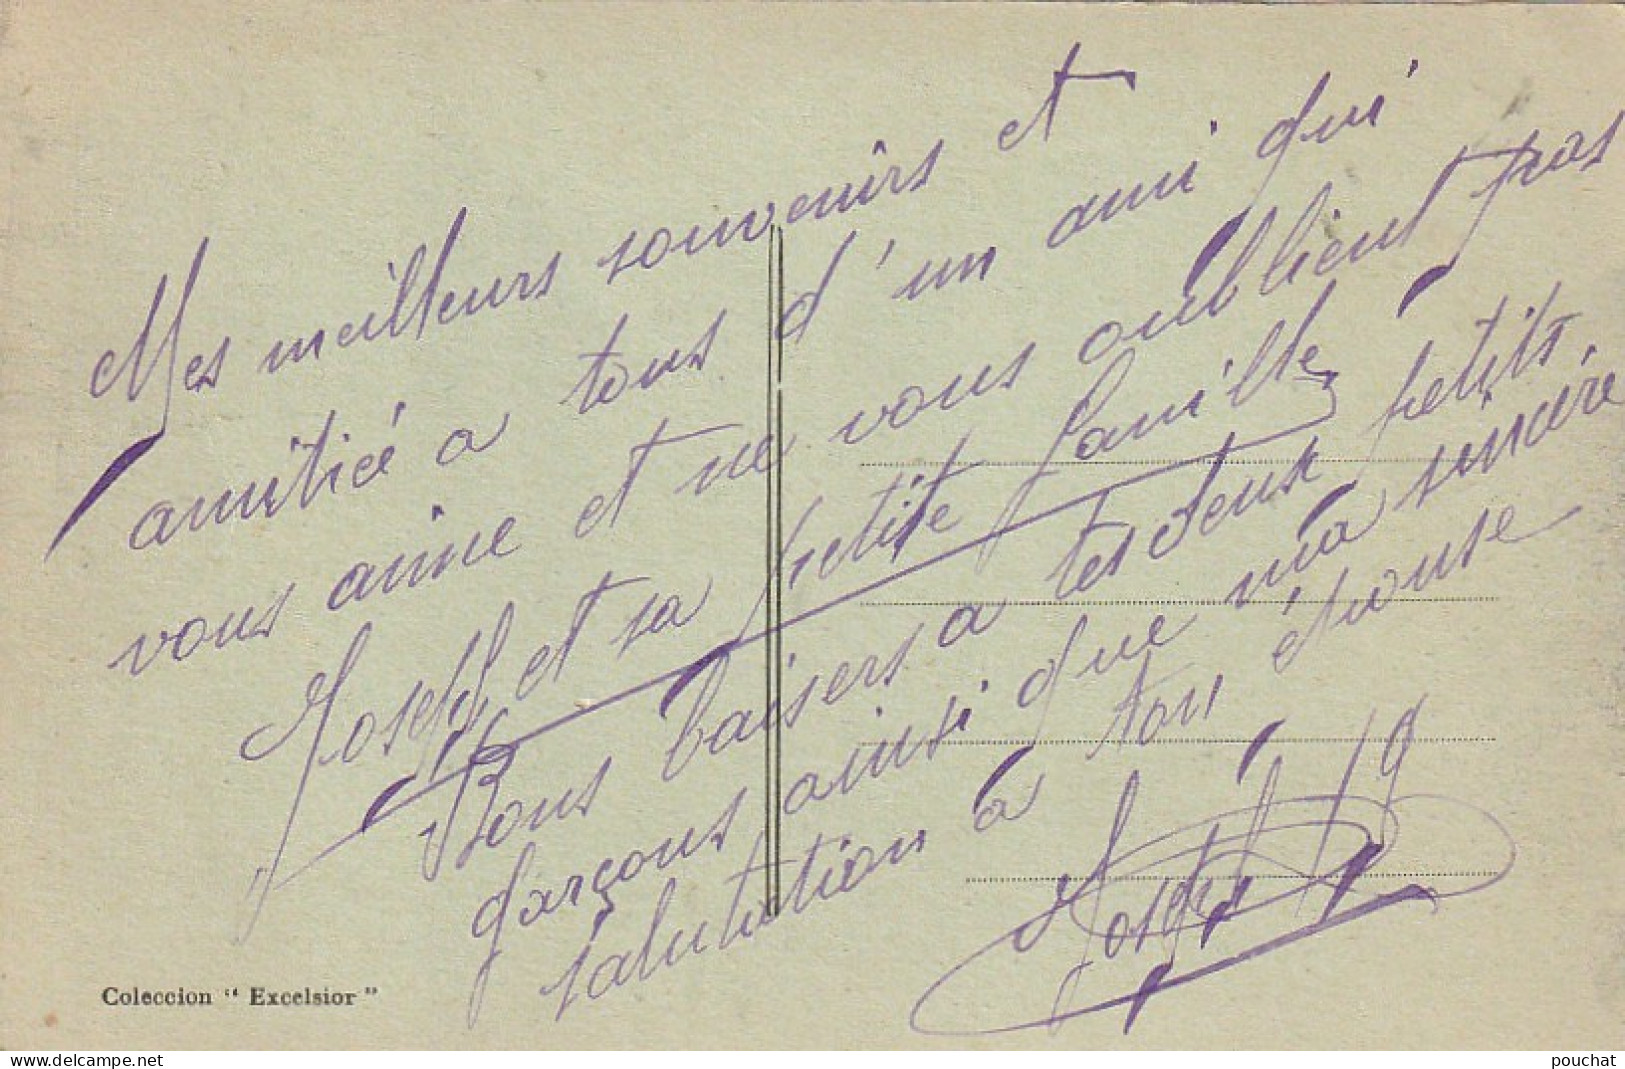 Mes meilleurs souvenirs et
amitieé a tous d'un ami qui
vous aime et ne vous oublient pas
Joseph et sa petite famille
Bons baisers a tes deux petits
garçons ainsi que ma sincère
salutation a ton épouse
Joseph
Coleccion " Excelsior "
www.delcampe.net
pouchat